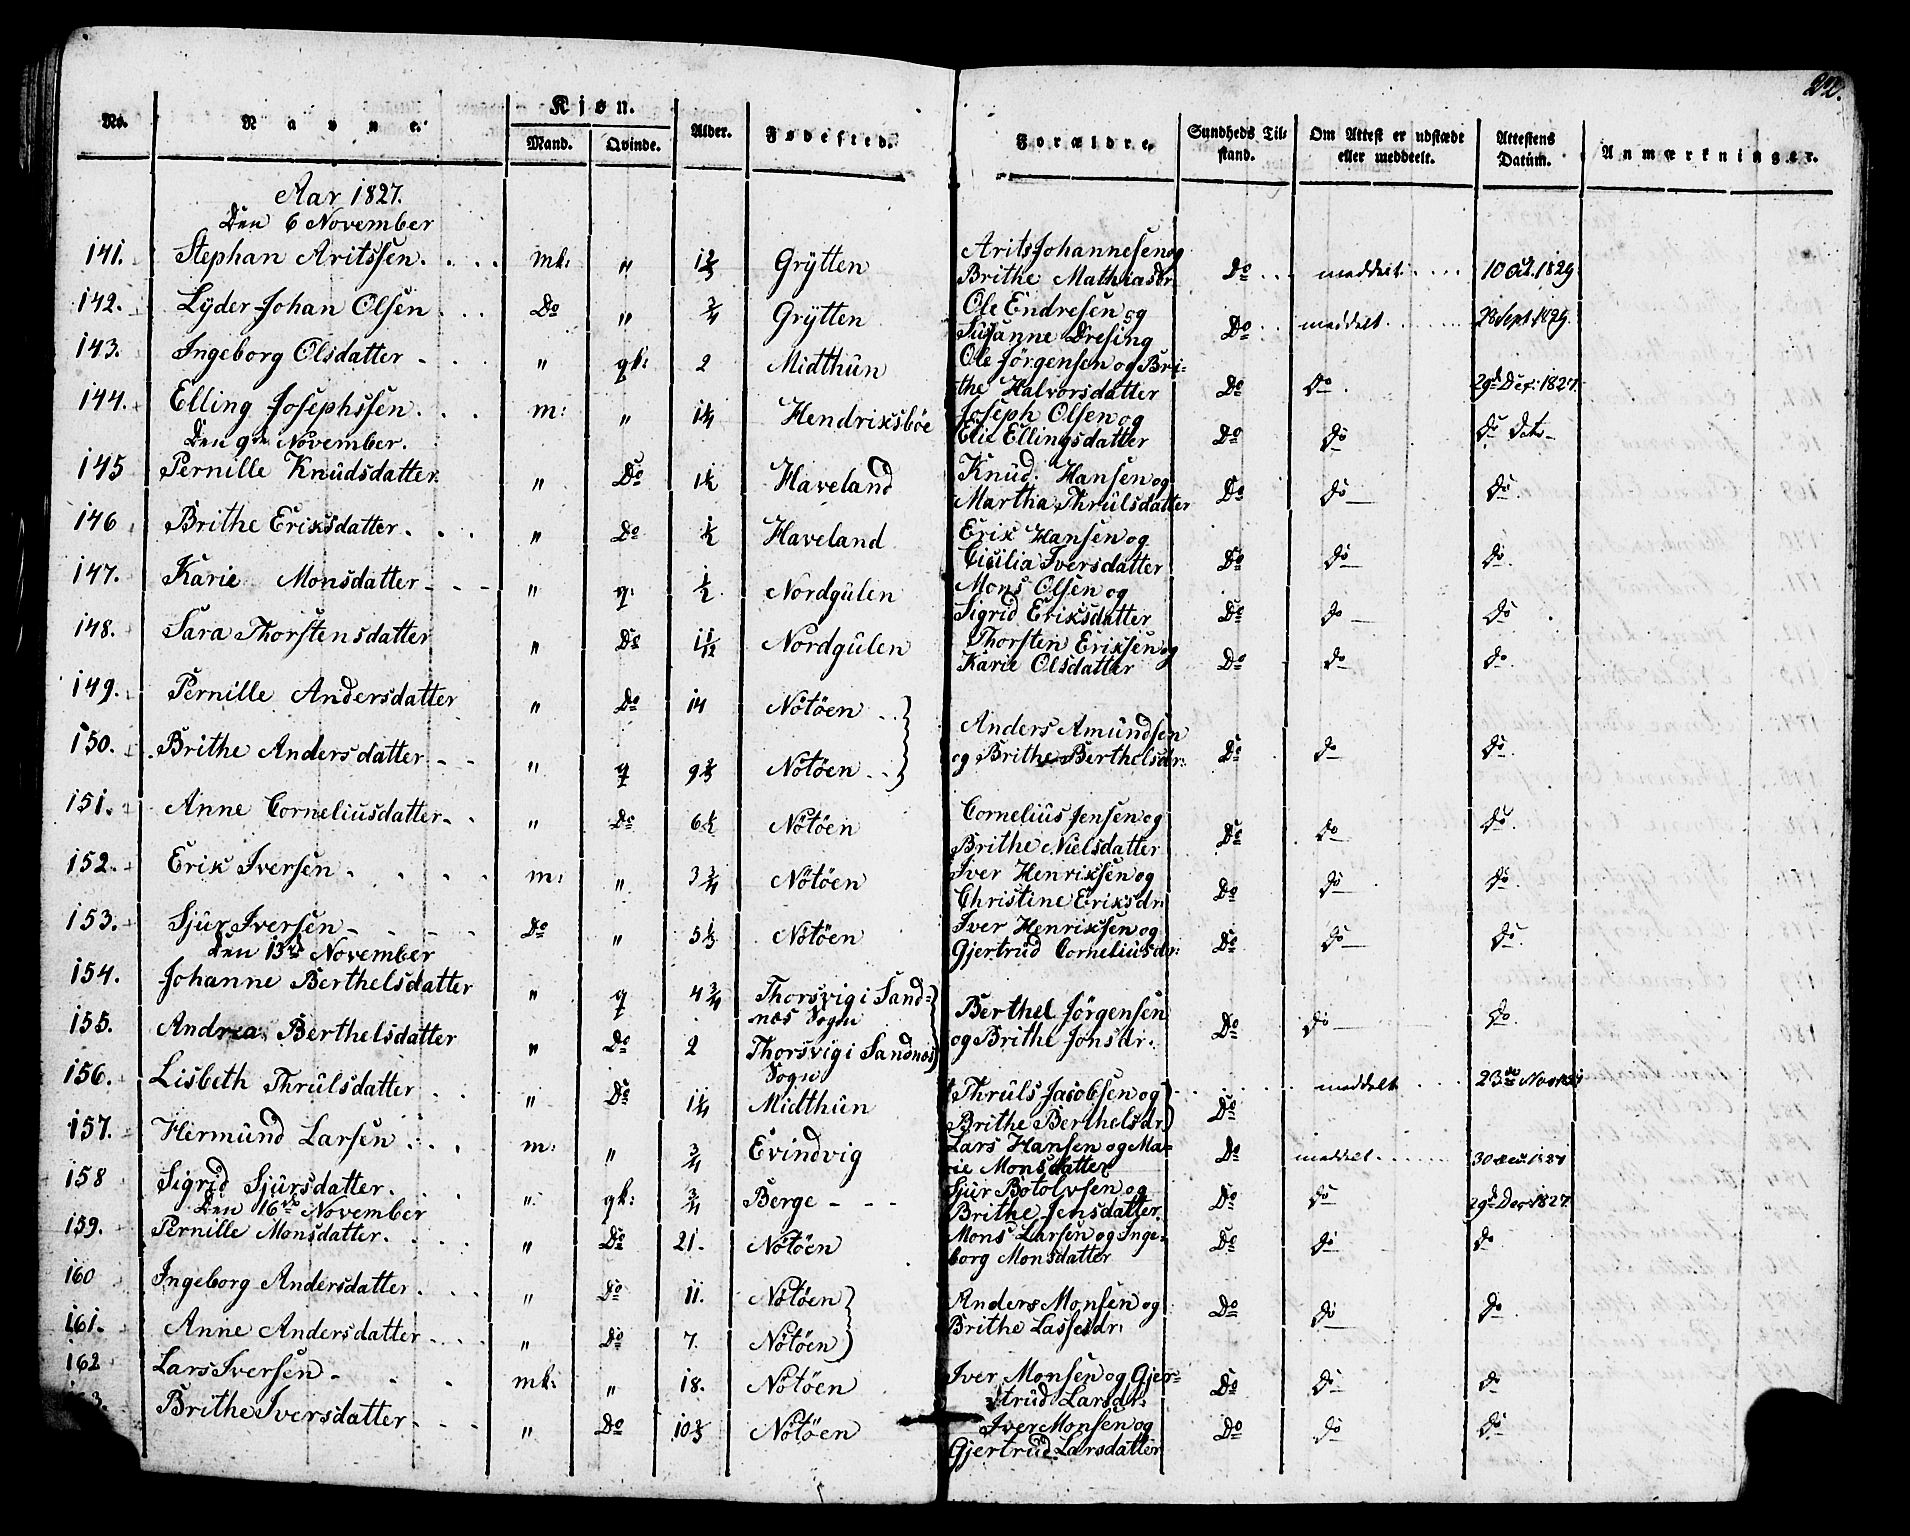 22.
No. Navne. Kjøn. Mand. Qvinde. Alder. Fødested. Forældre. Sundheds Tilstand. Om Attest er udstædt eller meddeelt. Attestens Datum. Anmærkninger.
Aar 1827.
Den 6 November
141. Stephan Aritssen. mk: " 1⅔ Grÿtten Arits Johannesen og
Brithe Mathiasdr. Do meddelt 10 Oct. 1829
142. Lÿder Johan Olsen Do " ¾ Grÿtten Ole Endresen og
Susanne Dresing Do meddelt 28 Sept. 1829.
143. Ingeborg Olsdatter " qk: 2 Midthün Ole Jörgensen og Bri-
the Halvorsdatter Do Do 29d Dec: 1827
144. Elling Josephssen. m: " 1¼ Hendrixsböe Joseph Olsen og
Elie Ellingsdatter Do do do dets
Den 9de November.
145 Pernille Knüdsdatter " Do 1½ Haveland Knüd Hansen og
Martha Thrülsdatter Do do do.
146 Brithe Erixsdatter. " Do ½ Haveland Erix Hansen og
Cicilia Iversdatter Do do do.
147. Karie Monsdatter " q: ½ Nordgülen Mons Olsen og
Sigrid Erixsdatter Do do do.
148. Sara Thorstensdatter " Do 1 1/12 Nordgülen Thorsten Erixsen og
Karie Olsdatter Do do do.
149. Pernille Andersdatter " Do 14 Nötöen
150. Brithe Andersdatter " q 9⅔ Nötöen Anders Amündsen
og Brithe Berthelsdr: Do do do.
151. Anne Corneliusdatter " Do 6½ Nötöen Cornelius Jensen og
Brithe Nielsdatter Do do do.
152. Erik Iversen m: " 3¾ Nötöen Iver Henrixsen og
Christine Erixsdr: Do do do.
153. Sjür Iversen Do " 5⅓ Nötöen Iver Henrixsen og
Gjertrüd Corneliusdr: Do do do.
Den 13de November
154. Johanne Berthelsdatter " q 4¾ Thorsvig i Sand-
næs Sogn Berthel Jörgensen
155. Andrea Berthelsdatter " Do 2 Thorsvig i Sandnæs
Sogn og Brithe Jonsdr: Do do do.
156. Lisbeth Thrülsdatter " Do 1¼ Midthün Thrüls Jacobsen og
Brithe Berthelsdr Do meddelt 23de
157. Hermünd Larsen m: " ¾ Evindvig Lars Hansen og Ma-
rie Monsdatter Do meddelt 30
158 Sigrid Sjürsdatter. " qk: ¾ Berge Sjür Botolvsen og
Brithe Jensdatter Do do 29d Dec 1827
Den 16de November
159. Pernille Monsdatter. " Do 21. Nötöen Mons Larsen og Inge-
borg Monsdatter Do do do
160 Ingeborg Andersdatter. " Do 11. Nötöen Anders Monsen og
161. Anne Andersdatter " Do 7. Nötöen Brithe Lassesdr: Do do do.
162 Lars Iversen mk: " 18. Nötöen Iver Monsen og Gjer-
trüd Larsdr. Do do do
3. Brithe Iversdatter " Do 10⅔ Nötöen Iver Monsen og
Gjertrüd Larsdatter Do do do